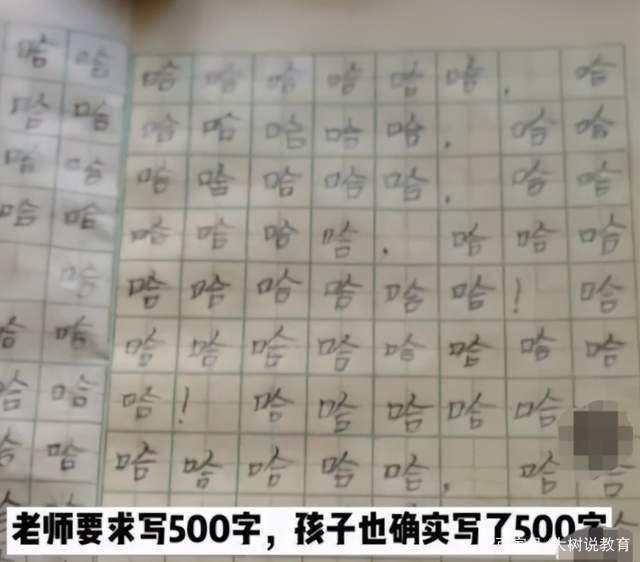 哈哈
哈哈
哈哈
哈哈
哈
哈哈
哈哈
哈哈
哈哈哈哈哈哈.哈
哈哈哈哈哈.哈哈
哈哈哈哈哈.哈哈
哈哈哈哈.哈哈哈
哈哈哈哈哈哈!哈
哈哈哈哈哈哈哈哈
哈!哈哈哈哈哈
哈哈哈哈哈.哈哈
老师要求写500字，孩子也确实写了500字
大树说教育